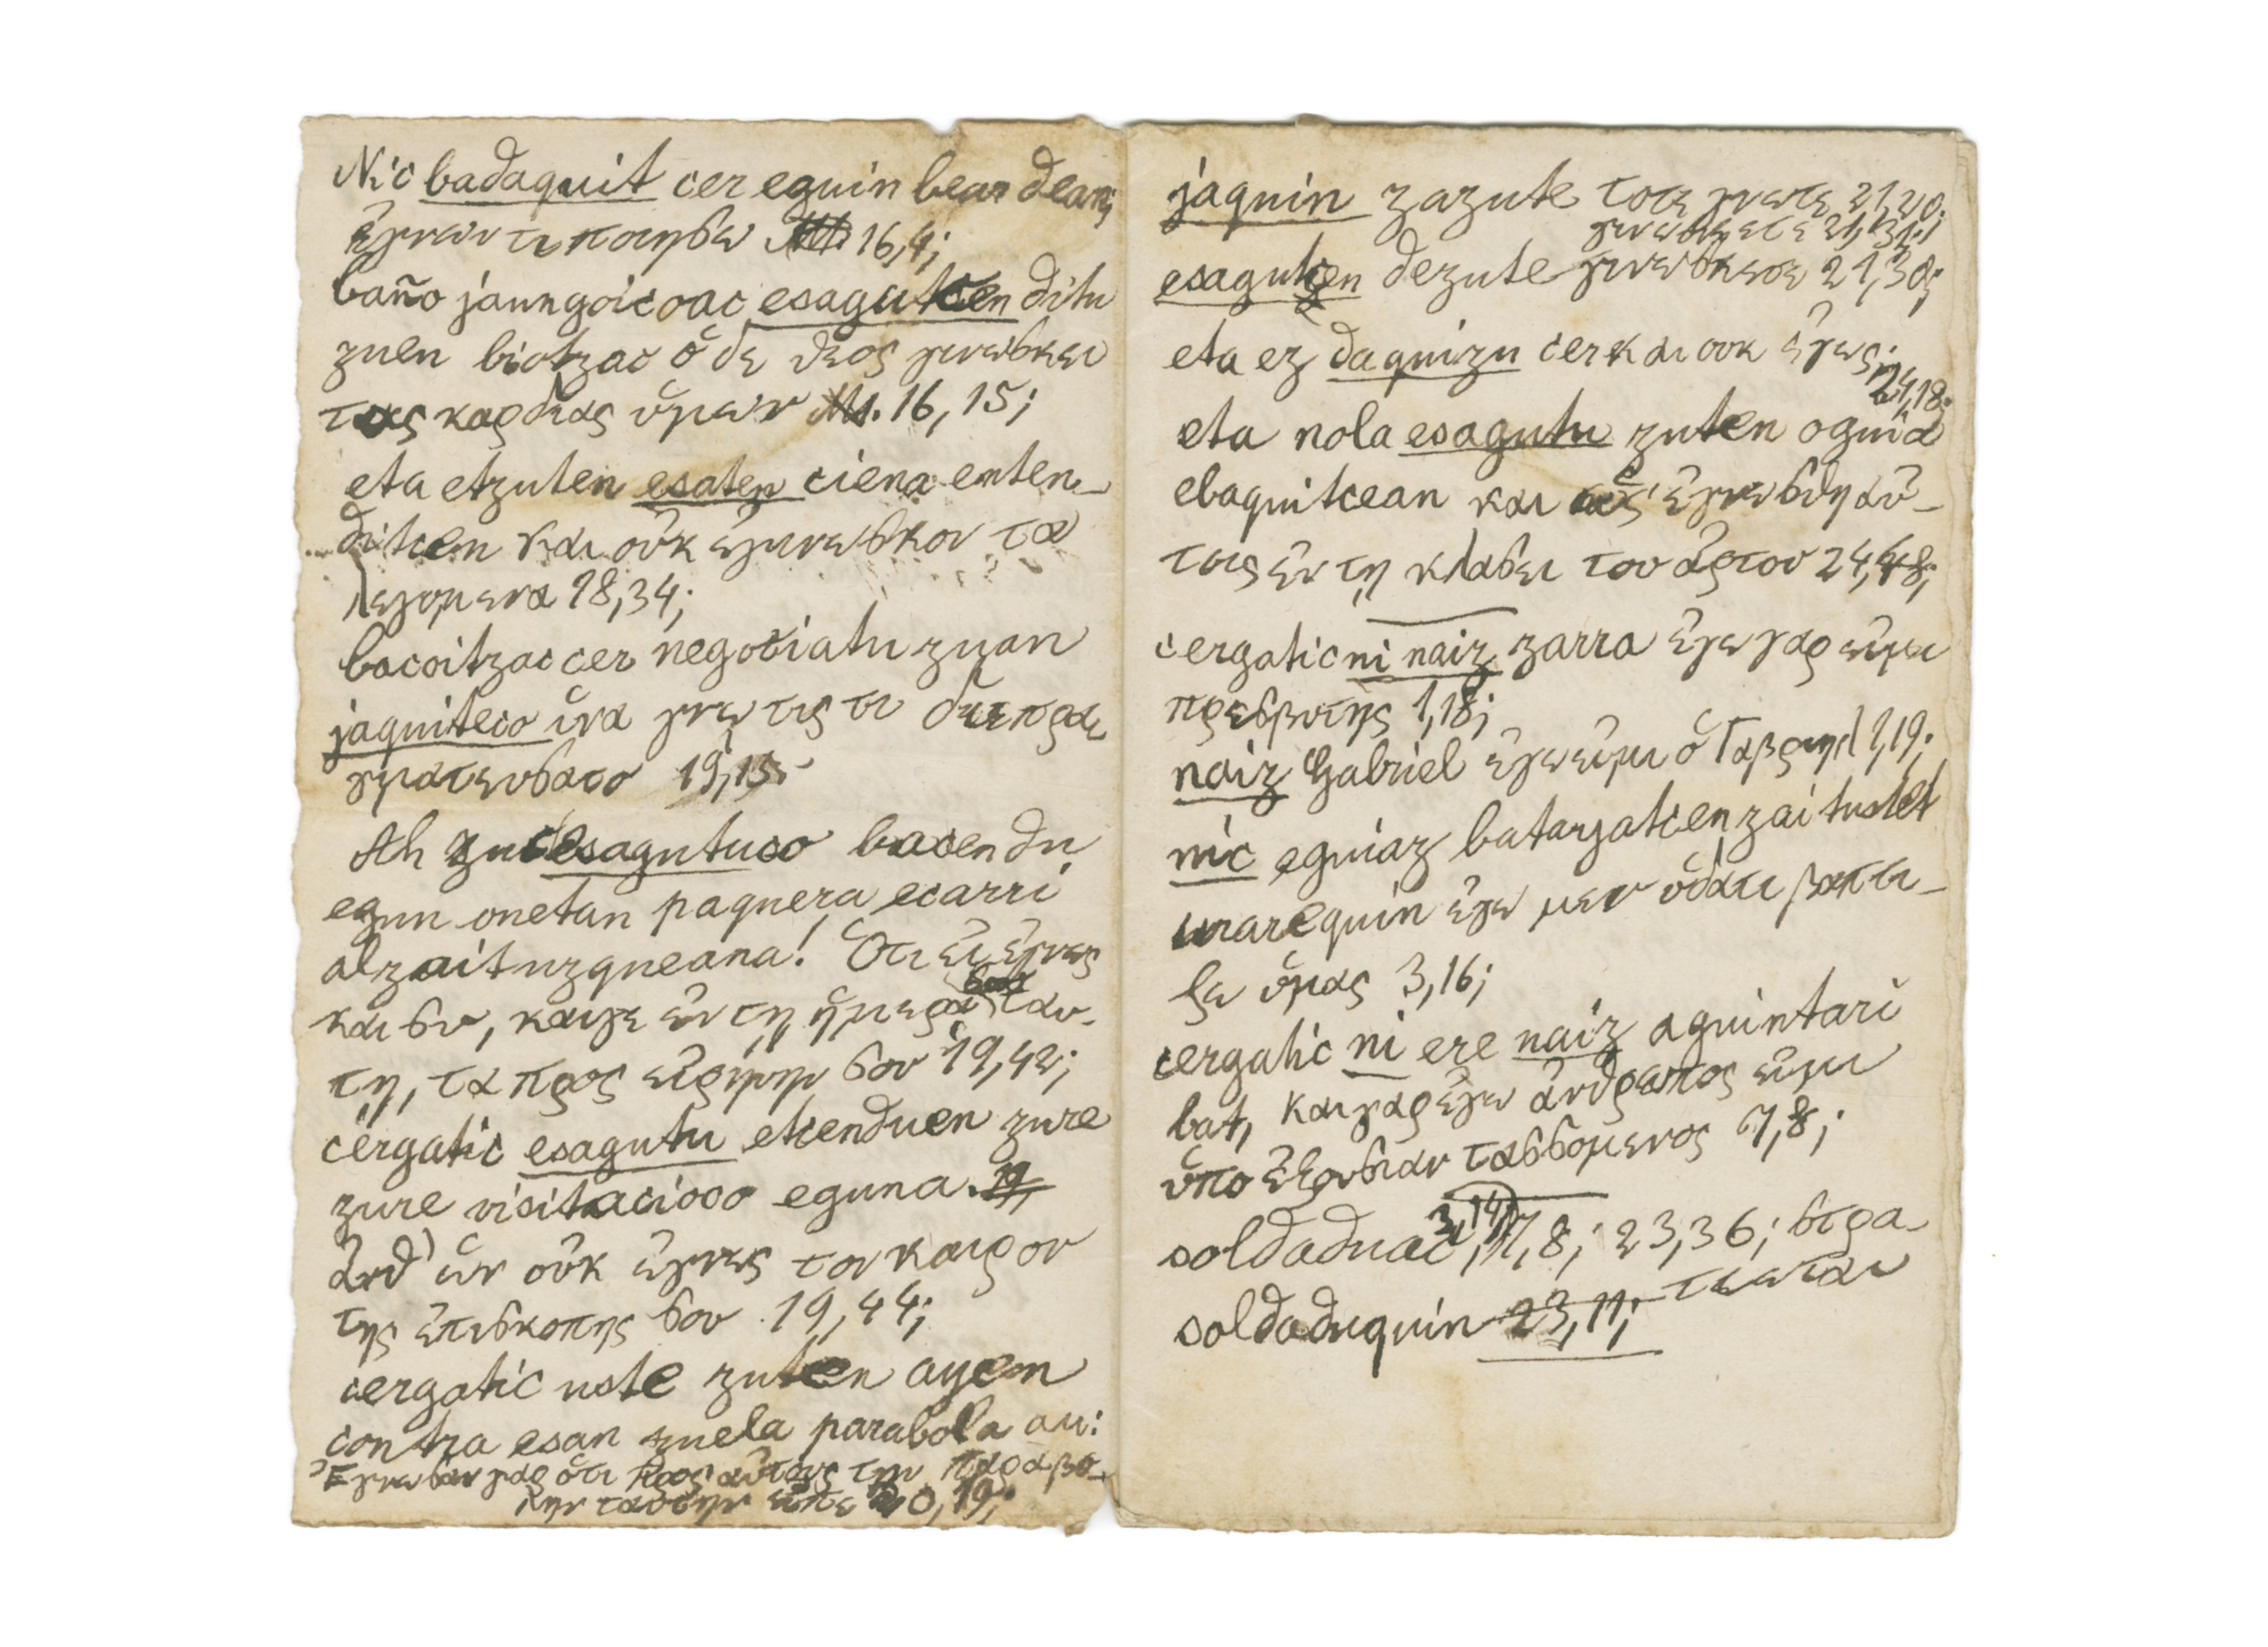 Nic badaquit cer eguin bear dean;
ἔγνων τι ποιησω 16,4;
baño jaungoicoac esagutcen ditu
zuen biotzac ὁ δε θεος γινωσκει
τας καρδιας ὑμων 16,15;
eta etzuten esaten ciena enten-
ditcen και οὐκ ἐγινωσκον τα
λεγομενα 18,34;
bacoitzac cer negociatu zuan
jaquiteco ἱνα γνω τις τι διεπρα
γματευσατο 19,15.
Ah zuc esagutuco bacendu
egun onetan paquera ecarri
alzaituzqueana! Ὁτι εἰ ἐγνως
και συ, καιγε ἐν τῃ ἡμερᾳ σου ταυ-
τῃ, τα προς εἰρηνην σου 19,42;
cergatic esagutu etcenduen zure
zure visitacioco eguna. 19,
ἀνθ' ὡν οὐκ ἐγνως τον καιρον
της ἐπισκοπης σου 19,44;
cergatic uste zuten ayen
contra esan zuela parabola au:
Ἐγνωσαν γαρ ὁτι προς αὐτους την παραβο-
λην ταυτην εἰπε 20,19;
jaquin zazute τοτε γνωτε 21,20;
γινωσκετε 21,31;
esagutzen dezute γινωσκετε 21,30;
eta ez daquizu cer και ουκ ἐγνως;
24,18.
eta nola esagutu zuten oguia
ebaquitcean και ὡς ἐγνωσθη αὐ-
τοις ἐν τῃ κλασει του ἀρτου 24,
cergatic ni naiz zarra ἐγω γαρ εἰμι
πρεσβυτης 1,18;
naiz Gabriel ἐγω εἰμι ὁ Γαβριηλ 1,19;
nic eguiaz batayatcen zaitustet
urarequin ἐγω μεν ὑδατι βαπτι-
ζω ὑμας 3,16;
cergatic ni ere naiz aguintari
bat, και γαρ ἐγω ἀνθρωπος εἰμι
ὑπο ἐξουσιαν τασσομενος 7,8;
3,14,
soldaduac, 7,8; 23,36; στρα-
τιωται
soldaduquin 23,11;